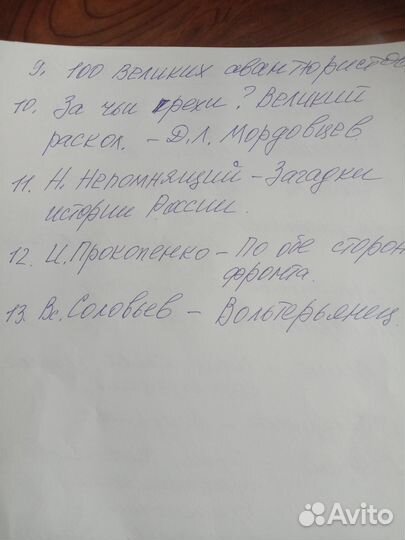 9. 100 великих авантюристов
10. За чьи грехи? Великий
раскол. – Д.Л. Мордовцев.
11. Н. Непомнящий – Загадки
истории России.
12. И. Прокопенко – По обе сторон
фронта.
13. Вс. Соловьев – Вольтерьянец.
Avito